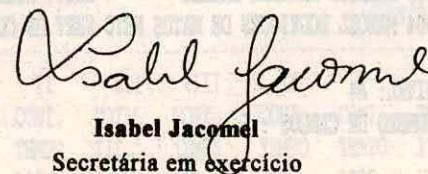 Isabel Jacomel
Isabel Jacomel
Secretária em exercício